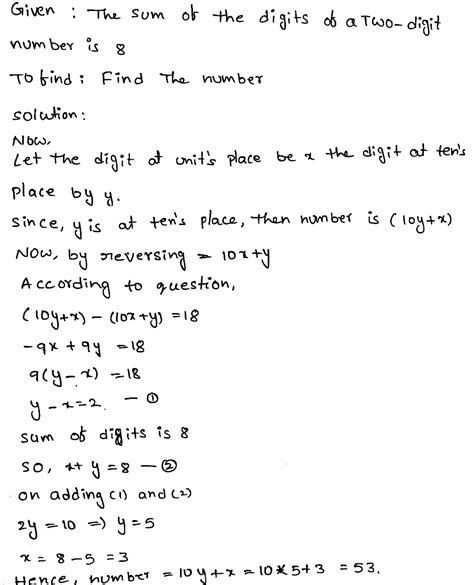 Given : The sum of the digits of a Two-digit
number is 8
To find : Find The number
solution :
Now,
Let The digit at unit's place be x the digit at ten's
place by y.
since, y is at ten's place, then number is (10y+x)
NOW, by reversing = 10x+y
According to question,
(10y+x) - (10x+y) = 18
-9x + 9y = 18
9(y-x) = 18
y - x = 2. - ①
sum of digits is 8
so, x+ y = 8 - ②
on adding (1) and (2)
2y = 10 => y = 5
x = 8 - 5 = 3
Hence, number = 10y + x = 10×5+3 = 53.